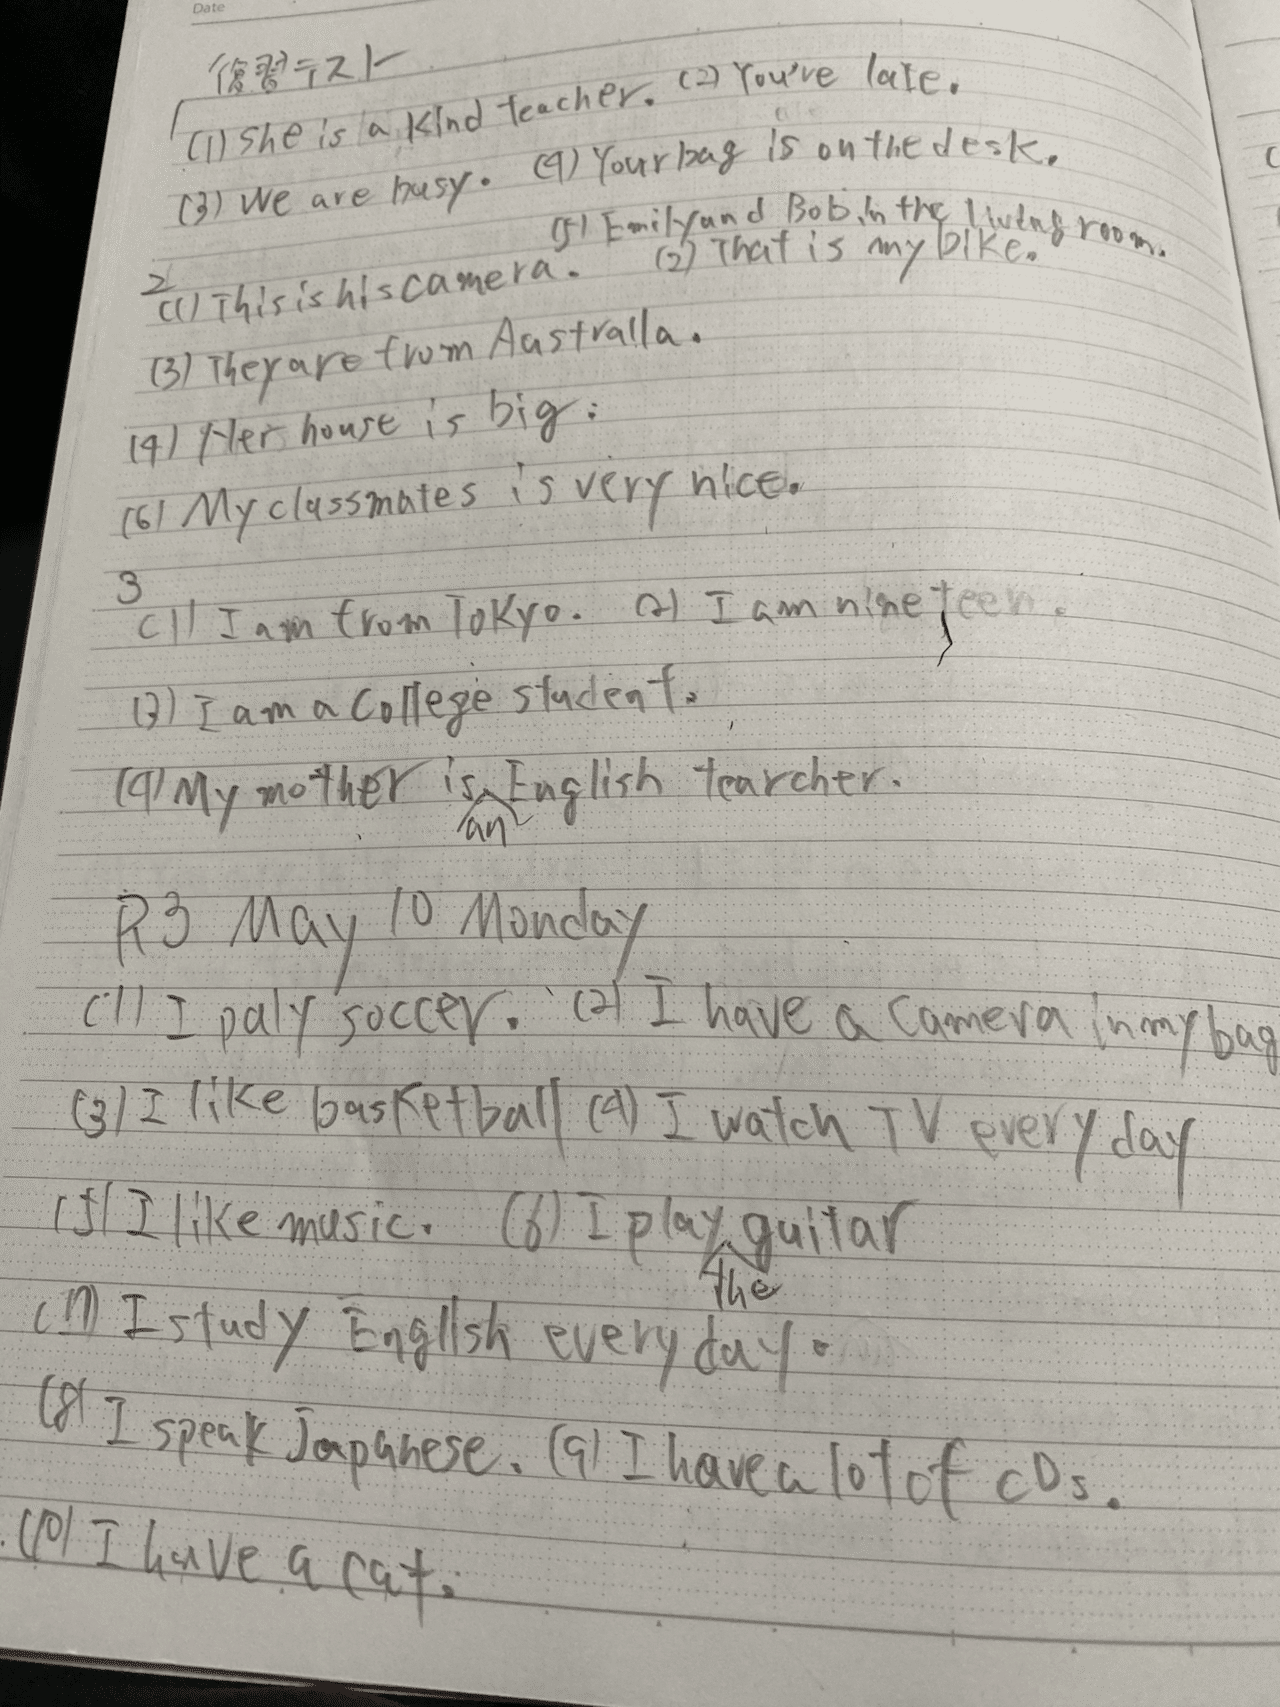 Date
復習テスト
(1) She is a kind teacher. (2) You've late.
(3) We are busy. (4) Your bag is on the desk.
(5) Emily and Bob in the living room.
2
(1) This is his camera. (2) That is my bike.
(3) They are from Aastralla.
(4) Her house is big.
(6) My classmates is very nice.
3
(1) I am from Tokyo. (2) I am nineteen.
(3) I am a college student.
(4) My mother is an English tearcher.
R3 May 10 Monday
(1) I paly soccer. (2) I have a camera in my bag
(3) I like basketball (4) I watch TV every day
(5) I like music. (6) I play the guitar
(7) I study English every day.
(8) I speak Japanese. (9) I have a lot of CDs.
(10) I have a cat.